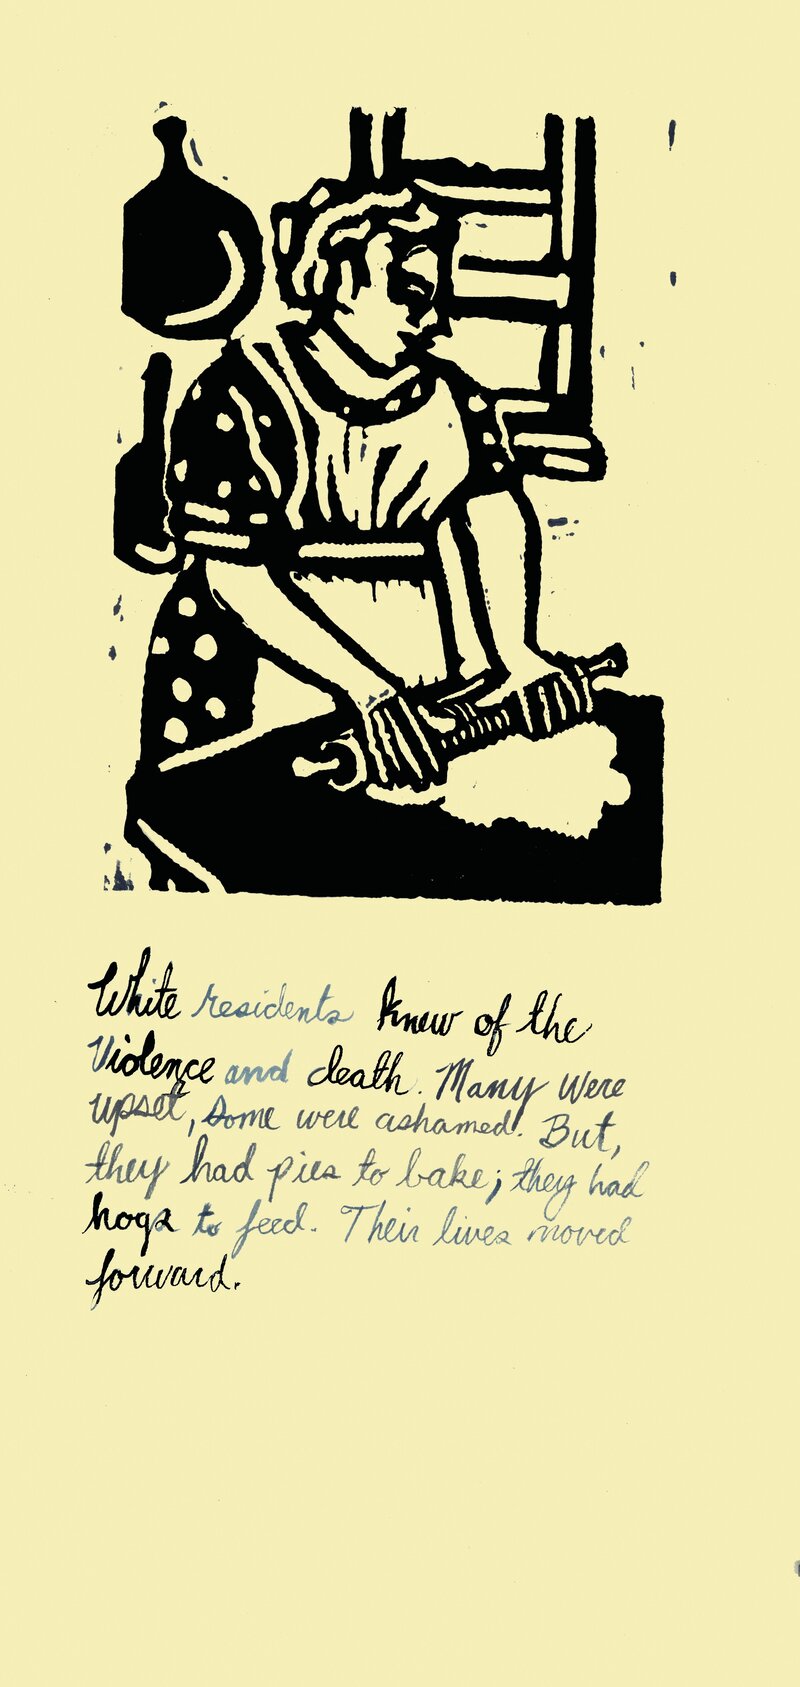 White residents knew of the
Violence and death. Many were
upset, some were ashamed. But,
they had pies to bake; they had
hogs to feed. Their lives moved
forward.